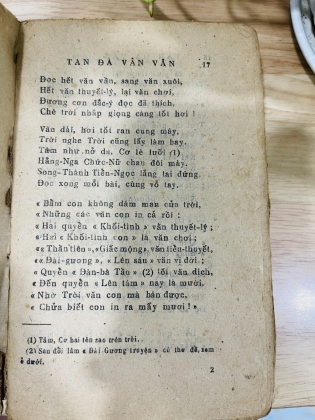 TẢN ĐÀ VẬN VĂN
17
Đọc hết văn vần, sang văn xuôi,
Hết văn thuyết-lý, lại văn chơi,
Đương cơn đắc-ý đọc đã thích,
Chè trời nhấp giọng càng tốt hơi !
Văn dài, hơi tốt ran cung mây,
Trời nghe Trời cũng lấy làm bay.
Tâm như nở dạ, Cơ lè lưỡi (1)
Hằng-Nga Chức-Nữ chau đôi mày.
Song-Thành Tiểu-Ngọc lắng tai đứng.
Đọc xong mỗi bài, cùng vỗ tay.
« Bẩm con không dám man cửa trời,
« Những các văn con in cả rồi ;
« Hai quyển « Khối-tình » văn thuyết-lý ;
« Hai « Khối-tình con » là văn chơi ;
« Thần tiên », « Giấc mộng » văn tiểu-thuyết,
« Đài-gương », « Lên sáu » văn vị đời ;
« Quyển « Đàn-bà Tầu » (2) lối văn dịch,
« Đến quyển « Lên tám » nay là mười.
« Nhờ Trời văn con mà bán được,
« Chửa biết con in ra mấy mươi ! »
(1) Tâm, Cơ hai tên sao trên trời.
(2) Sau đổi làm « Đài Gương truyện » có thơ đề, xem
ở dưới.
2